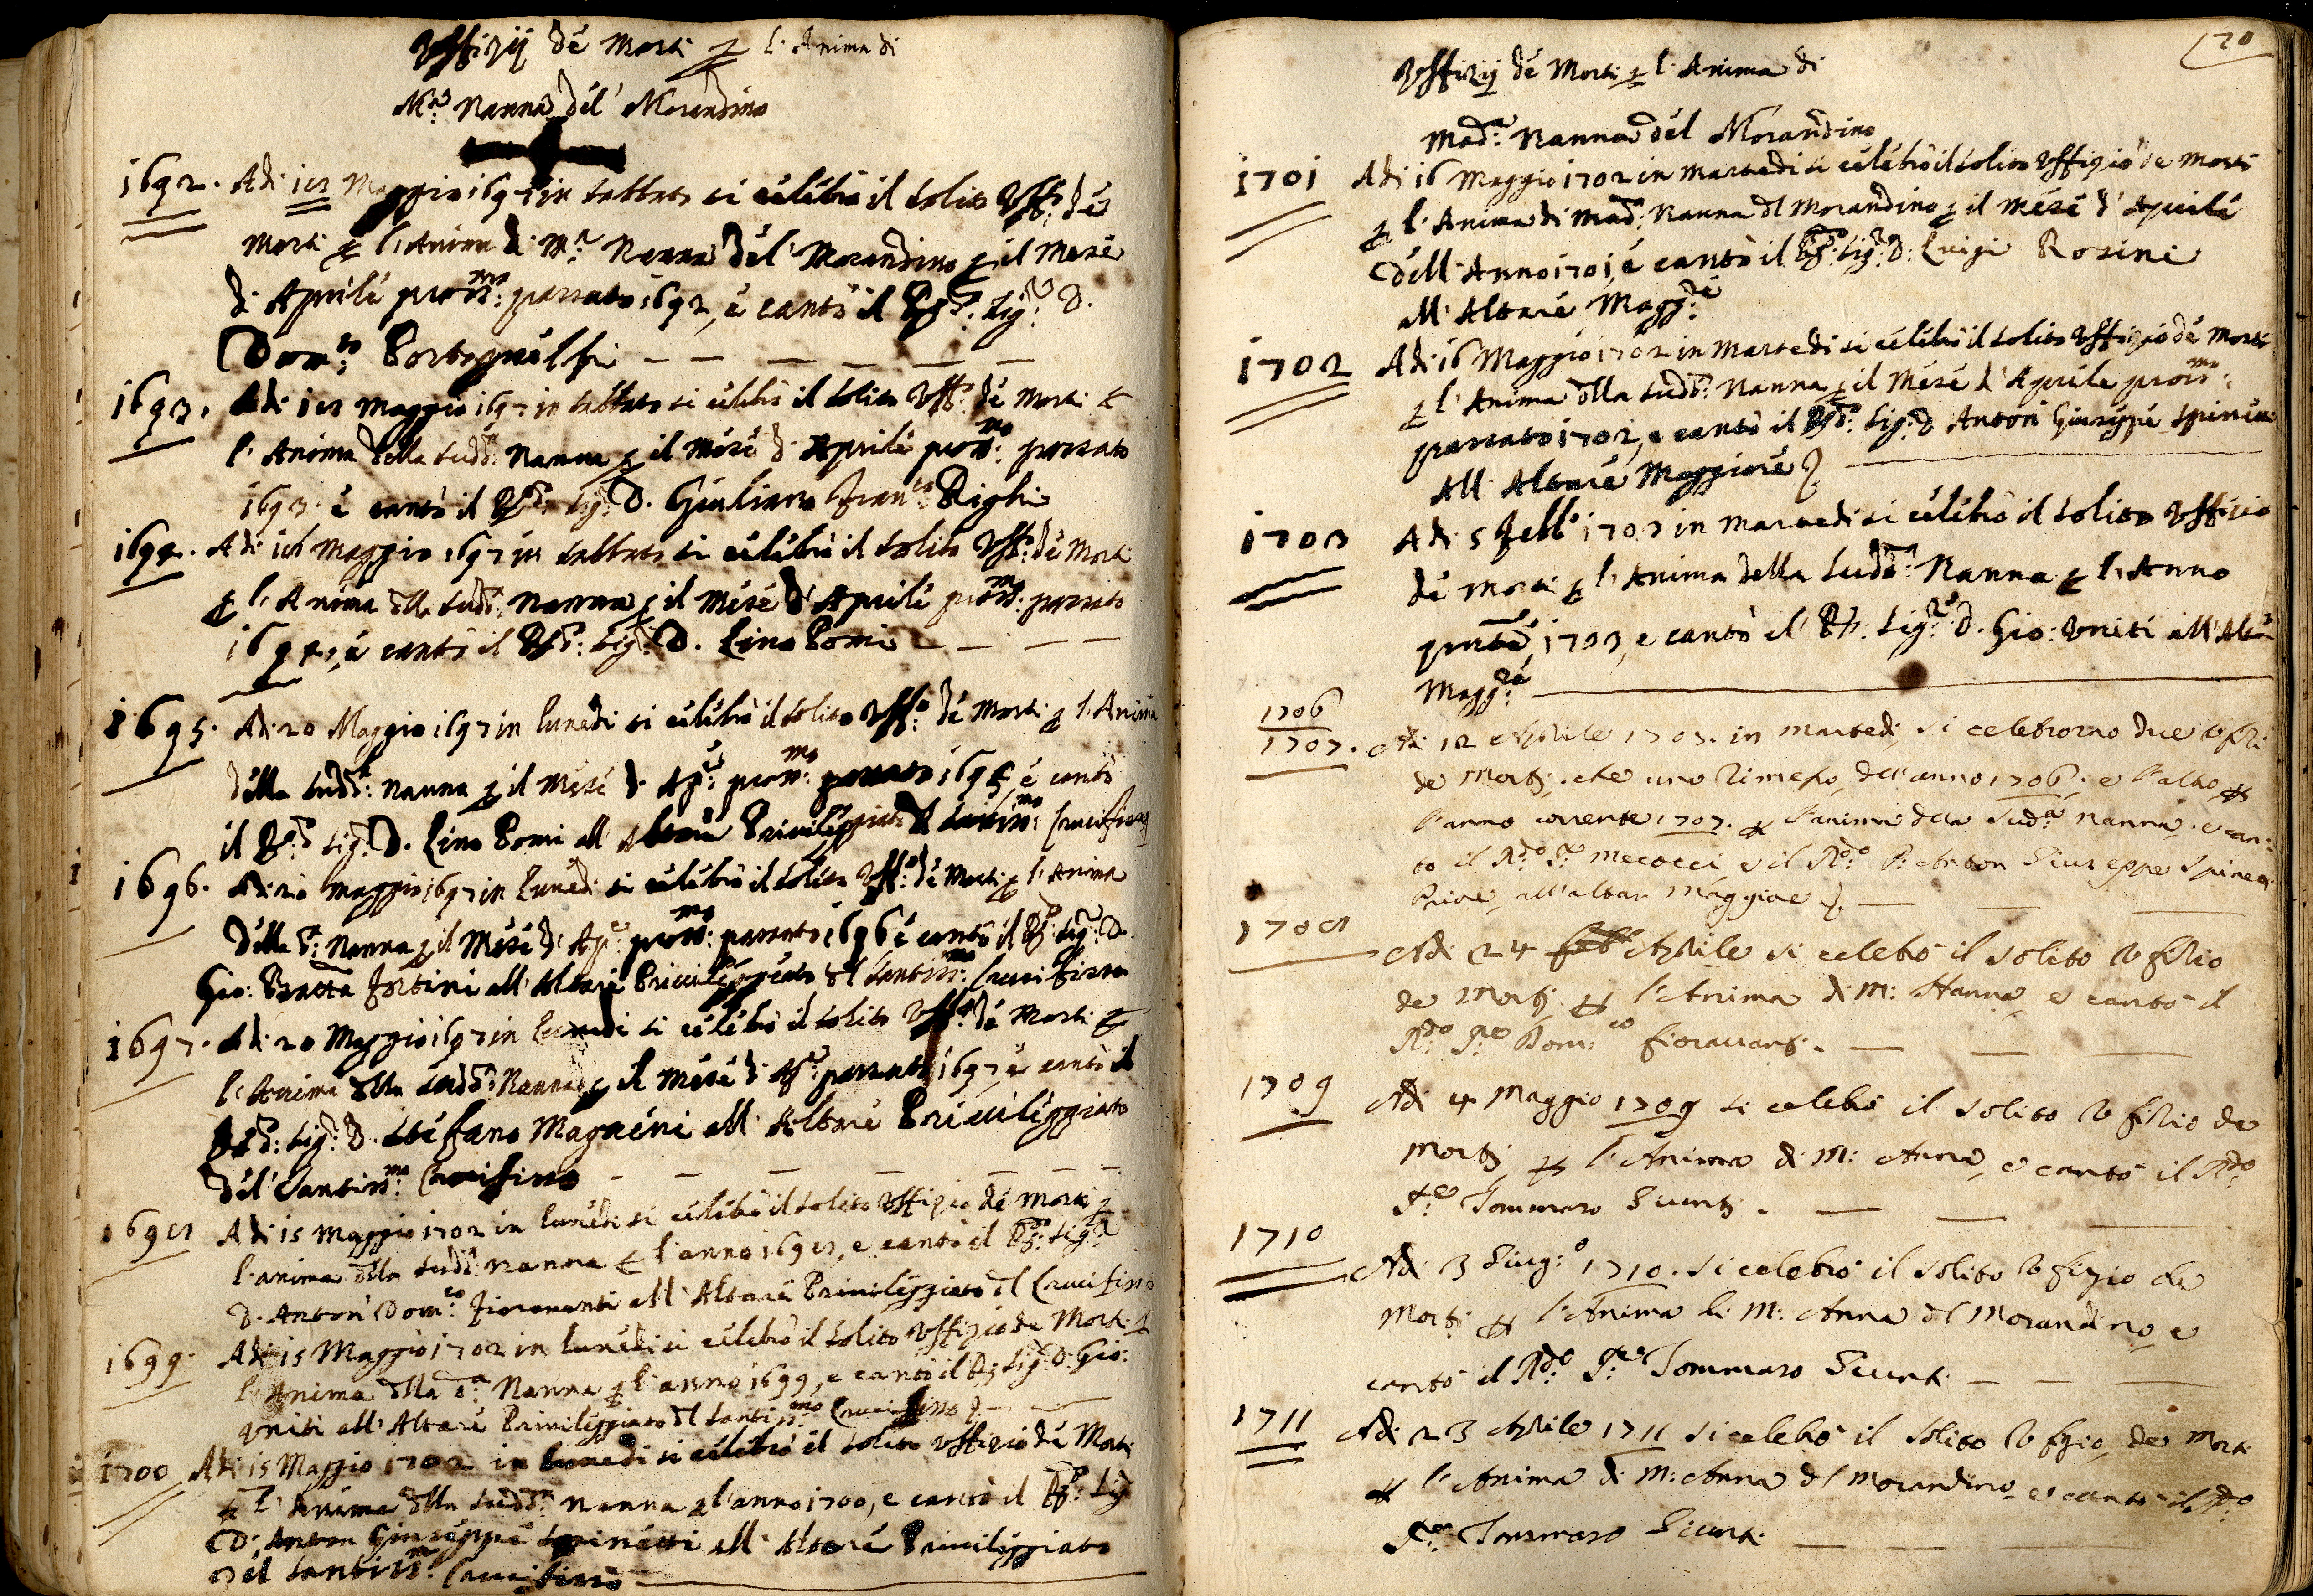 Uffizij dé Morti p l'Anima di
M.a Nanna del Morandino
1692. Adi 18 Maggio 1697 in Sabbato si celebrò il solito Uff.o dé
Morti p l'Anima di M.a Nanna del Morandino p il Mese
di Aprile pross.mo passato 1692, é cantò il R.do Sig.r D.
Dom.co Portoguelfi
1693. Adi 18 Maggio 1697 in Sabbato si celebrò il solito Uff.o dé Morti p
l'Anima della sudd.a Nanna p il Mese d'Aprile pross.mo passato
1693 é cantò il R.do Sig.r D. Giuliano Fran.co Righi
1694. Adi 18 Maggio 1697 in Sabbato si celebrò il solito Uff.o dé Morti
p l'Anima dlla sudd.a Nanna p il Mese d'Aprile pross.mo passato
1694, é cantò il R.do Sig.r D. Lino Pomi
1695. Adi 20 Maggio 1697 in Lunedi si celebrò il solito Uff.o dé Morti p l'Anima
della sudd.a Nanna p il Mese d. Ap.le pross.mo passato 1695 é cantò
il R.do Sig.r D. Lino Pomi all'Altare Privileggiato d Santiss.mo Crucifisso
1696. Adi 20 Maggio 1697 in Lunedi si celebrò il solito Uff.o dé Morti p l'Anima
della S.a Nanna p il Mese d'Ap.e pross.mo passato 1696 é cantò il R.do Sig.r D.
Gio: Batta Fortini all'Altare Privileggiato dl Santiss.mo Crucifisso
1697. Adi 20 Maggio 1697 in Lunedi si celebrò il solito Uff.o dé Morti p
l'Anima dlla sudd.a Nanna p il Mese d'Ap.e passato 1697, é cantò il
R.do Sig.r D. Stefano Magneni all'Altare Privileggiato
del Santiss.mo Crucifisso
1698 Adi 15 Maggio 1702 in Lunedi si celebrò il solito Uffizio dé Morti p
l'anima dlla sudd.a Nanna p l'anno 1698, e cantò il R.do Sig.r
D. Anton Dom.co Fioravanti all'Altare Privileggiato dl Crucifisso
1699. Adi 15 Maggio 1702 in Lunedi si celebrò il solito Uffizio de Morti p
l'Anima dlla S.a Nanna p l'anno 1699, e cantò il R.do Sig.r D. Gio:
Uniti all'Altare Privileggiato dl Santiss.mo Crucifisso
1700 Adi 15 Maggio 1702 in Lunedi si celebrò il solito Uffizio dé Morti
p l'Anima dlla sudd.a Nanna p l'anno 1700, e cantò il R.do Sig.
D. Anton Giuseppe Spinetti all'Altare Privileggiato
del Santiss.mo Crucifisso
70
Uffizij dé Morti p l'Anima di
Mad.a Nanna del Morandino
1701 Adi 16 Maggio 1702 in Martedi si celebrò il solito Uffizio de Morti
p l'Anima di Mad.a Nanna dl Morandino p il Mese d'Aprile
dell'Anno 1701, é cantò il R.do Sig.r D. Luigi Rosini
all'Altare Magg.re
1702 Adi 16 Maggio 1702 in Martedi si celebrò il solito Uffizio dé Morti
p l'Anima dlla sudd.a Nanna p il Mese d'Aprile pross.mo
passato 1702, e cantò il R.do Sig.r D Anton Giuseppe Spinetti
All'Altare Maggiore
1703 Adi 5 Febb.o 1703 in Martedi si celebrò il solito Uffizio
dé Morti p l'Anima della sudd.a Nanna p l'Anno
1703, e cantò il R.do Sig.re D. Gio: Uniti all'Altar
Magg.re
1706
1707. Adi 12 Aprile 1707. in Martedi si celebrorno due Ufizi
de Morti, che uno rimesso dell'anno 1706, e l'altro p
l'anno corrente 1707. p l'anima della Sud.a Nanna. e can:
to il R.do P.re Mecocci, e il R.do P: Anton Giuseppe Spinetti
Priore all'altar Maggiore
1708 Adi 24 Aprile si celebrò il solito Ufizio
de Morti p l'Anima di M: Nanna, e cantò il
R.do P.re Dom:co Fioravanti.
1709 Adi 4 Maggio 1709 si celebrò il solito Ufizio de
Morti p l'Anima di M: Anna, e cantò il R.do
P.re Tommaso Giunti.
1710 Adi 3 Giug:o 1710. si celebrò il solito Ufizio de
Morti p l'Anima di M: Anna dl Morandino e
cantò il R.do P.re Tommaso Giunti
1711 Adi 23 Aprile 1711 si celebrò il solito Ufizio de Morti
p l'Anima di M: Anna dl Morandino e cantò il R.do
P.re Tommaso Giunti.